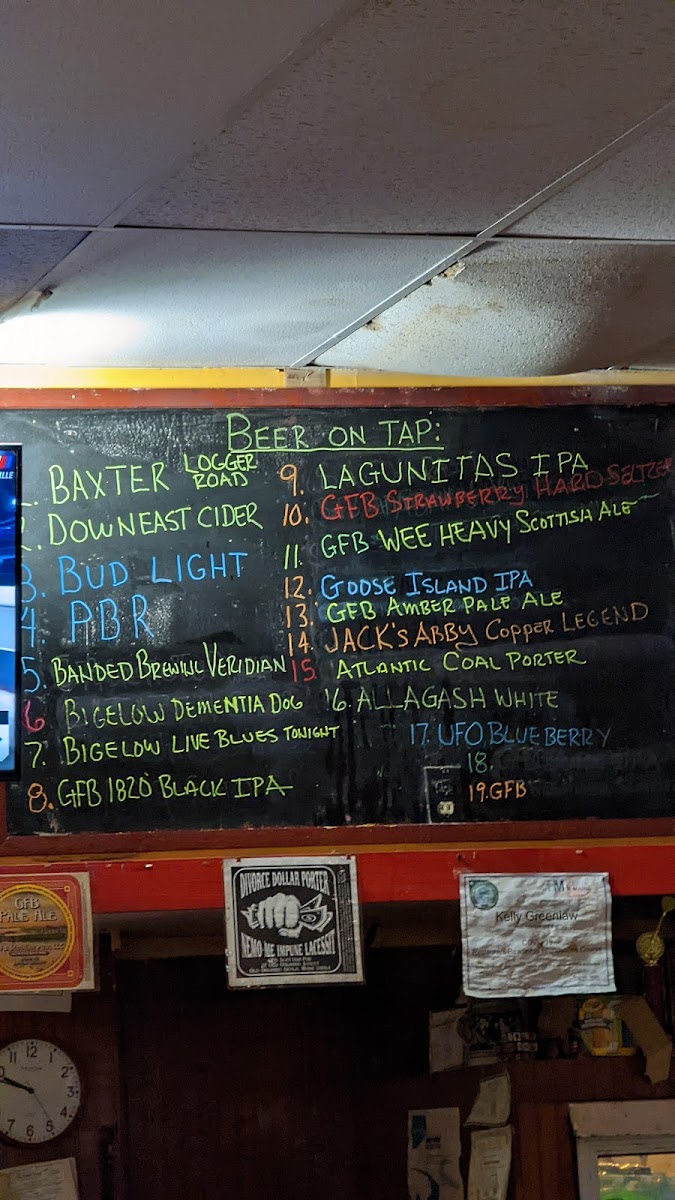 BEER ON TAP:
BAXTER LOGGER ROAD
DOWNEAST CIDER
3. BUD LIGHT
4. PBR
5. BANDED BREWING VERIDIAN
6 BIGELOW DEMENTIA DOG
7. BIGELOW LIVE BLUES TONIGHT
8. GFB 1820 BLACK IPA
9. LAGUNITAS IPA
10. GFB STRAWBERRY HARD SELTZER
11. GFB WEE HEAVY SCOTTISH ALE
12. GOOSE ISLAND IPA
13. GFB AMBER PALE ALE
14. JACK'S ABBY COPPER LEGEND
15 ATLANTIC COAL PORTER
16. ALLAGASH WHITE
17. UFO BLUEBERRY
18.
19. GFB
GFB
PALE ALE
DIVORCE DOLLAR PORTER
NEMO ME IMPUNE LACESSIT
Kelly Greenlaw
11 12 1 2 3 4 5 6 7 8